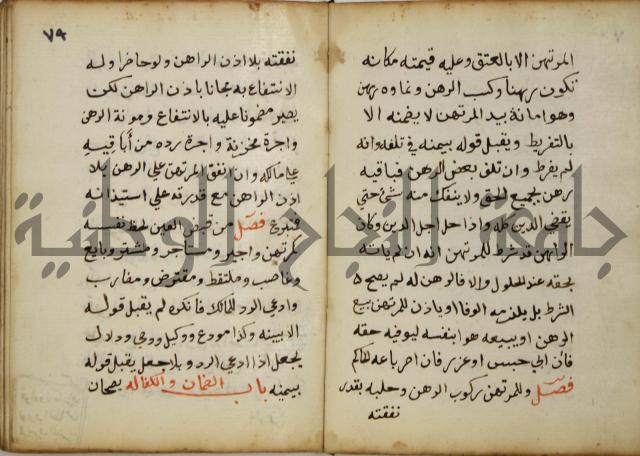 المرتهن الا بالعتق وعليه قيمته مكانه
تكون رهنا وكسب الرهن ونماوه رهن
وهو امانة بيد المرتهن لا يضمنه الا
بالتفريط ويقبل قوله بيمينه في تلفه وانه
لم يفرط وان تلف بعض الرهن فباقيه
رهن بجميع الحق ولا ينفك منه شئ حتى
يقضي الدين كله واذا حل اجل الدين وكان
الراهن قد شرط للمرتهن انه ان لم ياته
بحقه عند الحلول والا فالرهن له لم يصح
الشرط بل يلزمه الوفا او ياذن للمرتهن ببيع
الرهن او يبيعه هو بنفسه ليوفيه حقه
فان ابى حبس او عزر فان اصر باعه الحاكم
فصل وللمرتهن ركوب الرهن وحلبه بقدر
نفقته
٧٩
نفقته بلا اذن الراهن ولو حاضرا وله
الانتفاع به مجانا باذن الراهن لكن
يصير مضمونا عليه بالانتفاع ومونة الرهن
واجرة مخزنه واجرة رده من اباقه
على مالكه وان انفق المرتهن على الرهن بلا
اذن الراهن مع قدرته على استيذانه
فمتبرع فصل من قبض العين لحظ نفسه
كمرتهن واجير ومستاجر ومشتر وبايع
وغاصب وملتقط ومقترض ومضارب
وادعى الرد للمالك فانكره لم يقبل قوله
الا ببينه وكذا مودع ووكيل ووصي ودلال
بجعل اذا ادعى الرد وبلا جعل يقبل قوله
بيمينه باب الضمان والكفاله يصحان
جامعة النجاح الوطنية